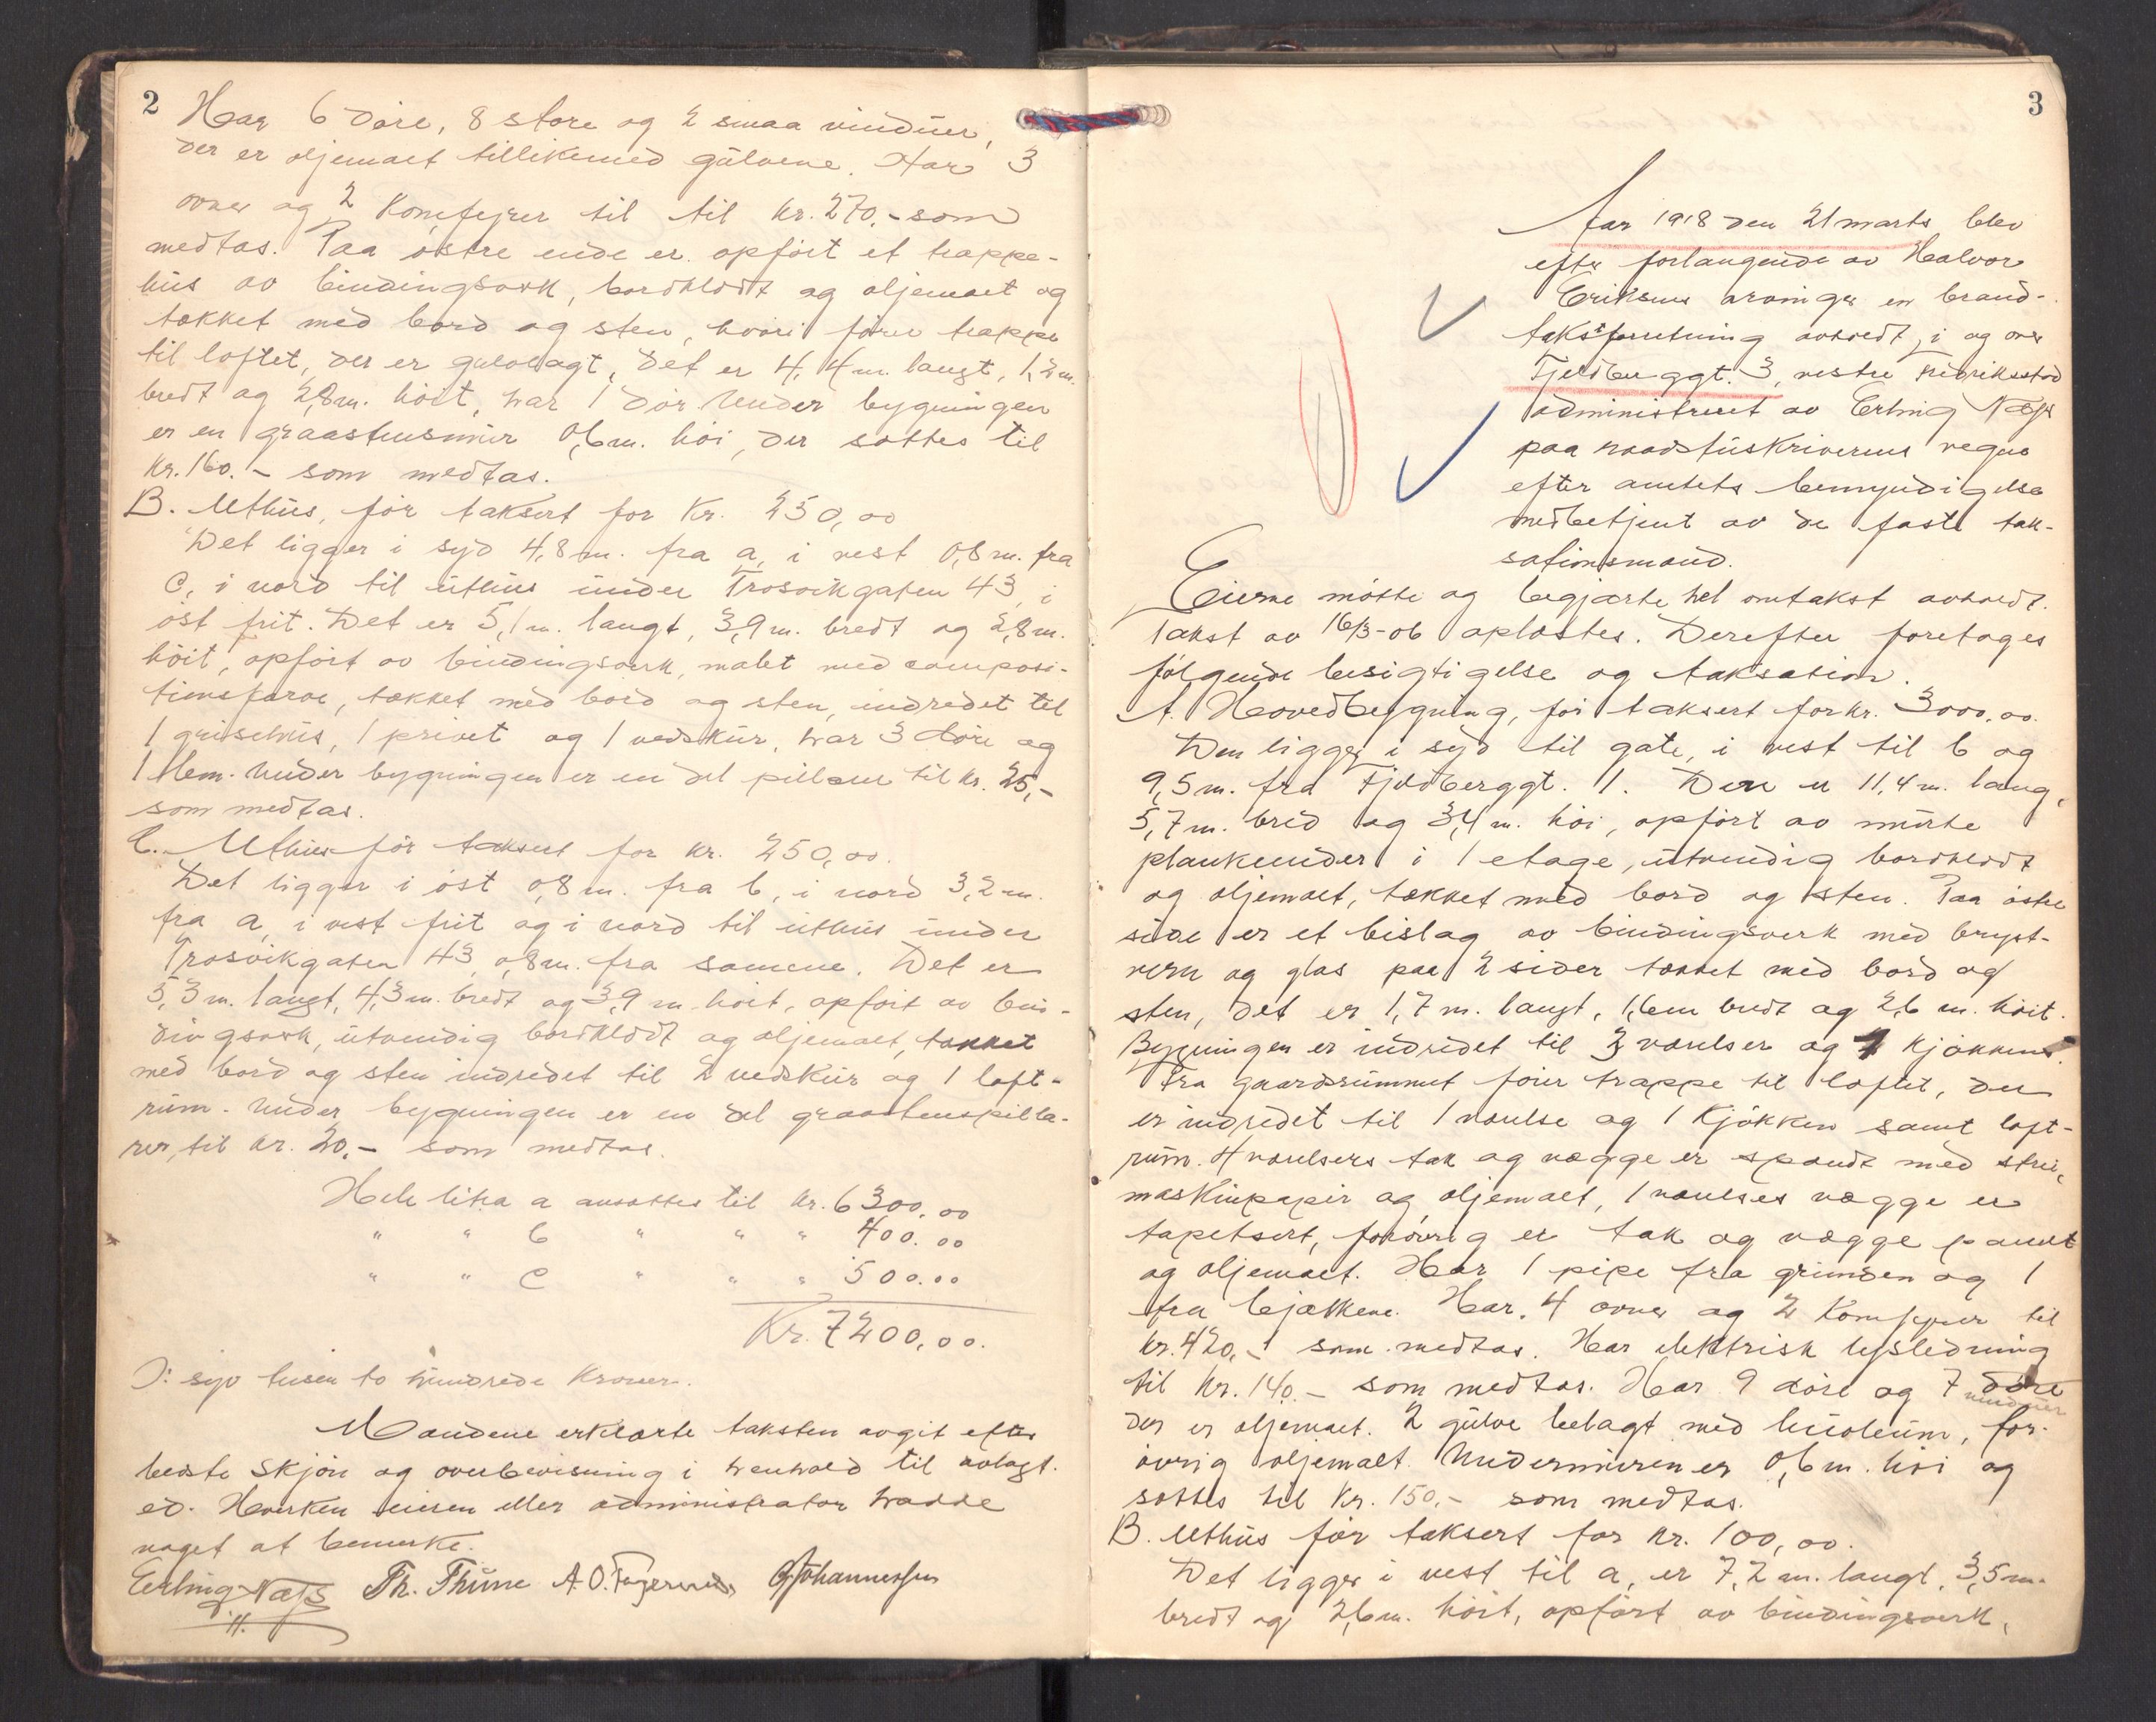 2
Har 6 döre, 8 store og 2 smaa vinduer,
der er oljemalt tillikemed gulvene. Har 3
ovner og 2 Komfeyrer til til kr. 270.- som
medtas. Paa östre ende er opfört et trappe-
hus av bindingsverk, bordklædt og oljemalt og
tækket med bord og sten, hvori förer trappe
til loftet, der er gulvlagt, det er 4,4 m. langt, 1,2 m.
bredt og 2,8 m. höit, har 1 dör. Under bygningen
er en graastensmur 0,6 m. höi, der sættes til
kr. 160.- som medtas.
B. Uthus, för taksert for Kr. 250,00
Det ligger i syd 4,8 m. fra a, i vest 0,8 m. fra
C, i nord til uthus under Trosvikgaten 43, i
öst frit. Det er 5,1 m. langt, 3,9 m. bredt og 2,8 m.
höit, opfört av bindingsverk, malet med composi-
tionsfarve, tækket med bord og sten, indredet til
1 grisehus, 1 privet og 1 vedskur, har 3 döre og
1 lem. Under bygningen er en del pillarer til kr. 25,-
som medtas.
C. Uthus för taksert for kr. 250,00.
Det ligger i öst 0,8 m. fra b, i nord 3,2 m.
fra a, i vest frit og i nord til uthus under
Trosvikgaten 43 0,8 m. fra samme. Det er
5,3 m. langt, 4,3 m. bredt og 3,9 m. höit, opfört av bin-
dingsverk, utvendig bordklædt og oljemalt, tækket
med bord og sten indredet til 2 vedskur og 1 loft-
rum. Under bygningen er en del graastenspilla-
rer, til kr. 20.- som medtas.
Hele litra a ansættes til kr. 6300,00
" " b " " " 400.00
" " C " " " 500.00
Kr. 7200,00.
D: syv tusen to hundrede Kroner.
Mændene erklærte taksten avgit efter
bedste skjön og overbevisning i henhold til avlagt.
ed. Hverken eieren eller administrator hadde
noget at bemerke.
Erling Næss Th. Thune A. O. G. Johannessen
3
Aar 1918 den 21 marts blev
efter forlangende av Halvor
Eriksens arvinger en brand-
takstforretning avholdt, i og over
Fjeldberggt. 3, vestre Fredriksstad
administreret av Erling Næss
paa raadstuskriverens vegne
efter amtets bemyndigelse
medbetjent av de faste tak-
sationsmænd.
Eierne mötte og begjærte hel omtakst avholdt.
Takst av 16/3-06 oplæstes. Derefter foretages
fölgende besigtigelse og taksation.
A. Hovedbygning, för taksert for kr. 3000,00.
Den ligger i syd til gate, i vest til b og
9,5 m. fra Fjeldberggt. 1. Den er 11,4 m. lang,
5,7 m. bred og 3,4 m. höi, opfört av murte
plankeender i 1 etage, utvendig bordklædt
og oljemalt, tækket med bord og sten. Paa östre
side er et bislag av bindingsverk med bryst-
vern og glas paa 2 sider tækket med bord og
sten, det er 1,7 m. langt, 1,6 m bredt og 2,6 m. höit.
Bygningen er indredet til 3 værelser og 1 kjökken.
Fra gaardsrummet förer trappe til loftet, der
er indredet til 1 værelse og 1 Kjökken samt loft-
rum. 4 værelsers tak og vægge er spændt med strie,
maskinpapir og oljemalt, 1 værelses vægge er
tapetsert, forövrig er tak og vægge panelt
og oljemalt. Har 1 pipe fra grunden og 1
fra bjælkene. Har 4 ovner og 2 Komfyrer til
kr. 420,- som medtas. Har elektrisk lysledning
til kr. 140.- som medtas. Har 9 döre og 7 döre
vinduer
der er oljemalt. 2 gulve belagt med linoleum, for-
övrig oljemalt. Undermuren er 0,6 m. höi og
sættes til Kr. 150.- som medtas.
B. Uthus för taksert for kr. 100,00.
Det ligger i vest til a, er 7,2 m. langt, 3,5 m.
bredt og 2,6 m. höit, opfört av bindingsverk,